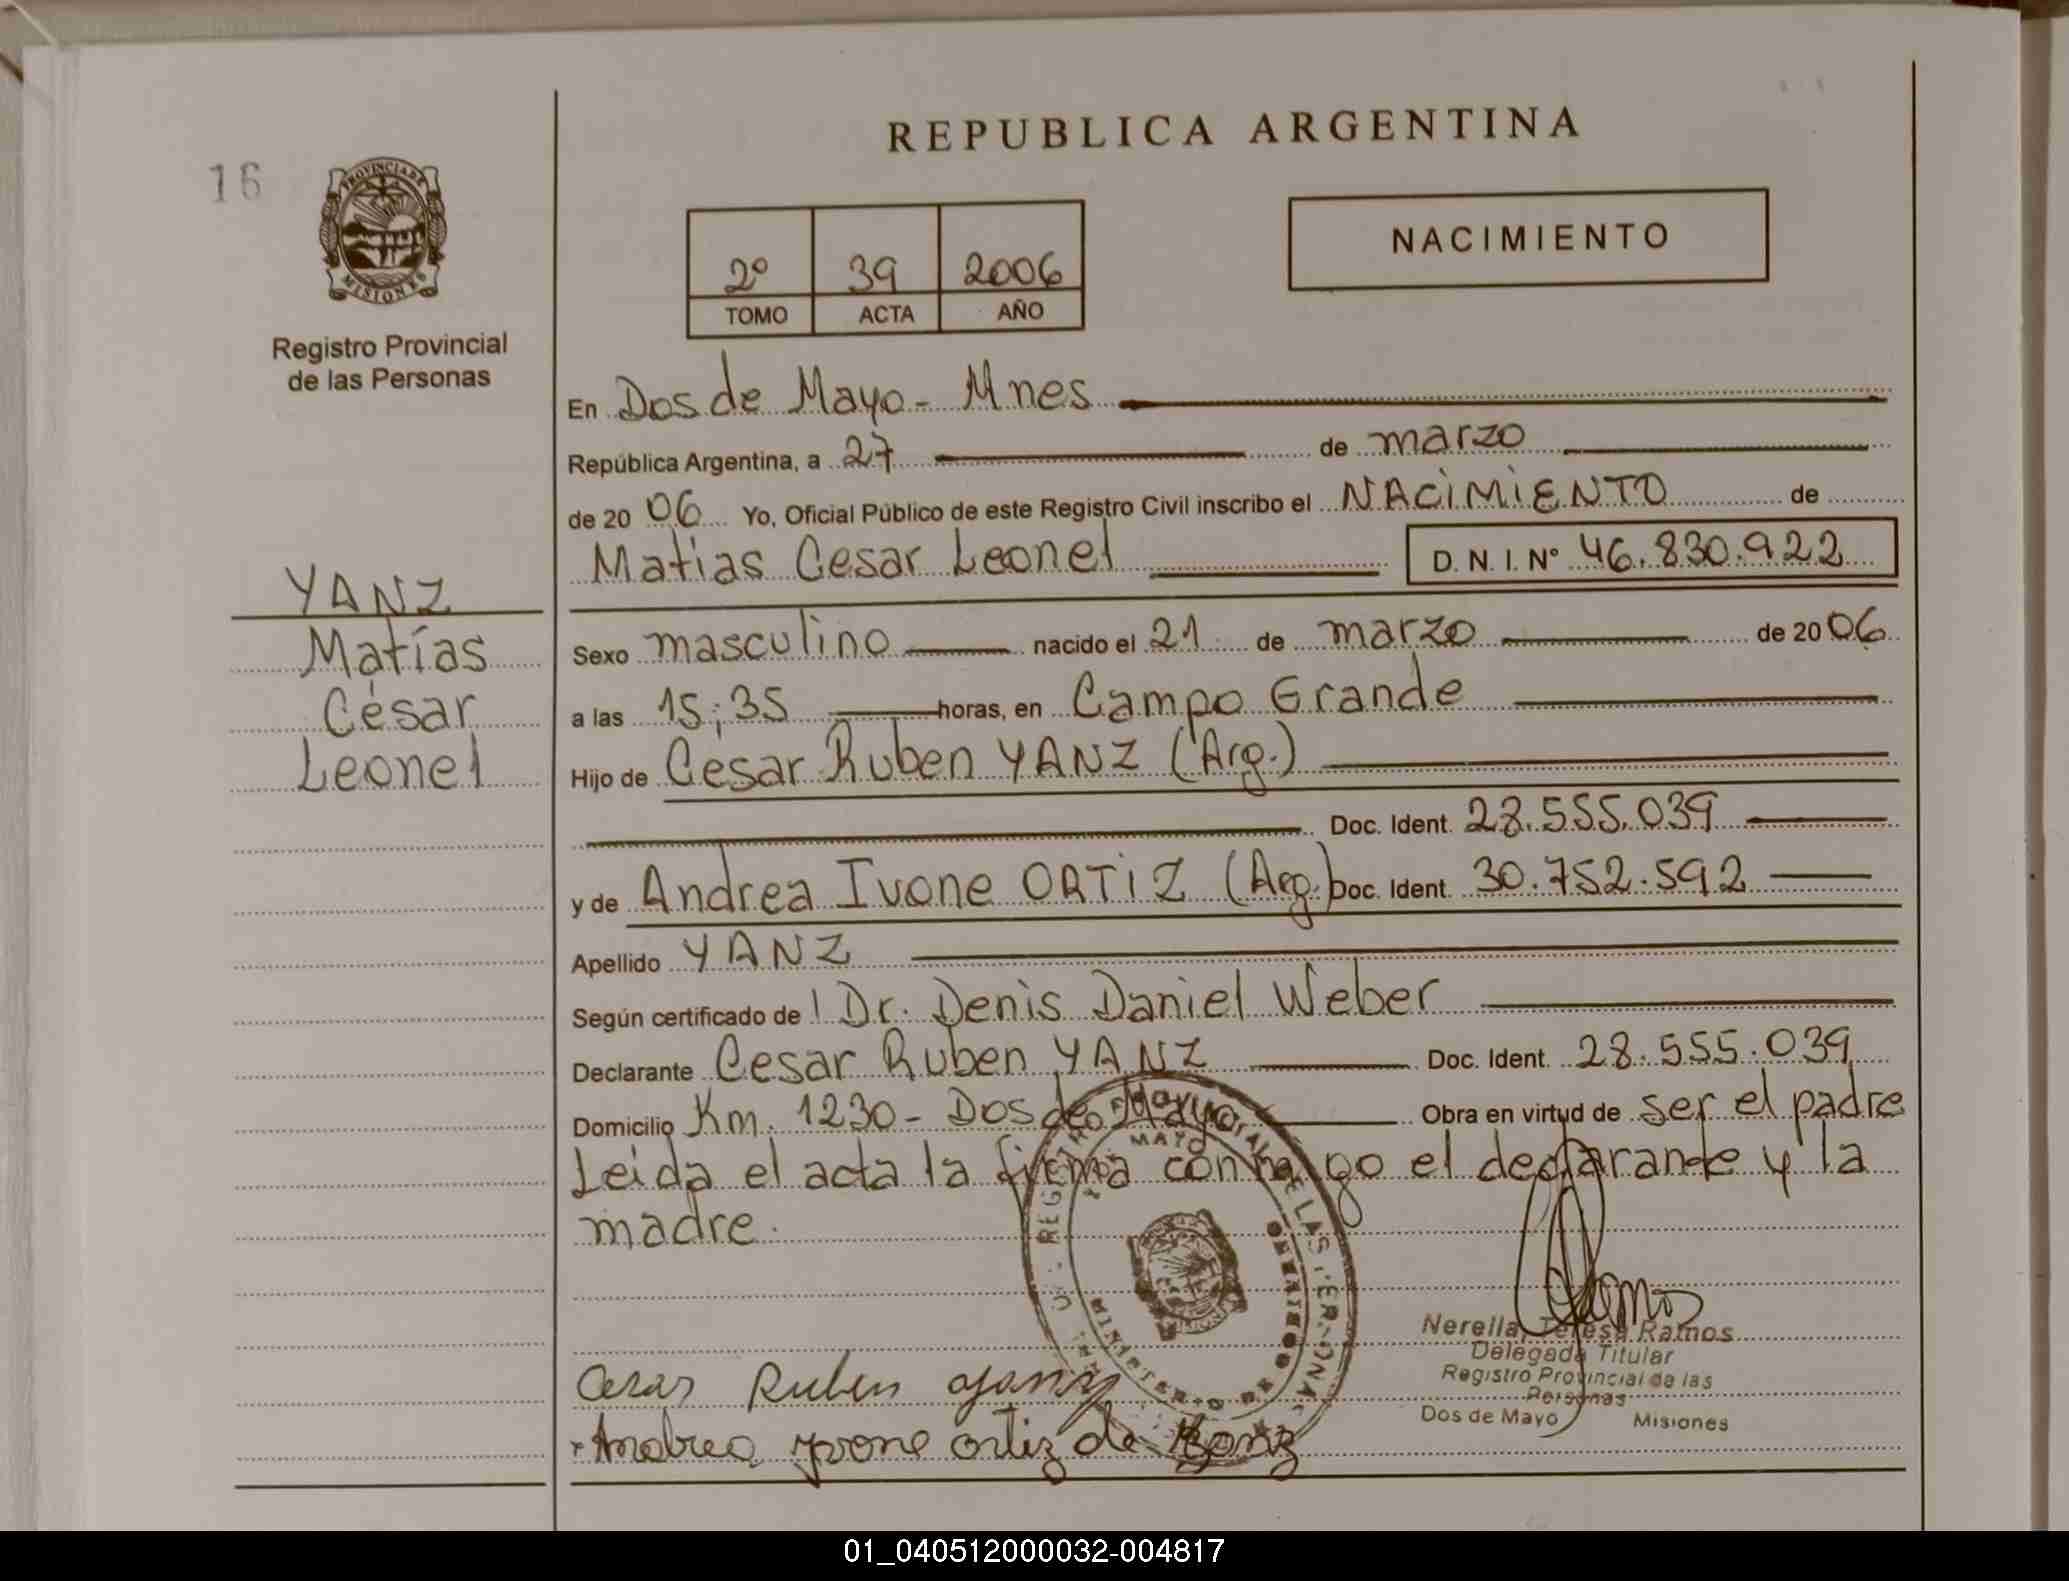 REPUBLICA ARGENTINA
16
PROVINCIA DE
MISIONES
Registro Provincial
de las Personas
2º 39 2006
TOMO ACTA AÑO
NACIMIENTO
YANZ
Matías
César
Leonel
En Dos de Mayo - Mnes
República Argentina, a 27 de marzo
de 2006 Yo, Oficial Público de este Registro Civil inscribo el NACIMIENTO de
Matias Cesar Leonel D. N. I. Nº 46.830.922
Sexo masculino nacido el 21 de marzo de 2006
a las 15;35 horas, en Campo Grande
Hijo de Cesar Ruben YANZ (Arg.)
Doc. Ident. 28.555.039
y de Andrea Ivone ORTIZ (Arg.) Doc. Ident. 30.752.592
Apellido YANZ
Según certificado de l Dr. Denis Daniel Weber
Declarante Cesar Ruben YANZ Doc. Ident. 28.555.039
Domicilio Km. 1230 - Dos de Mayo Obra en virtud de ser el padre
Leida el acta la firma conmigo el declarante y la
madre.
Nerella Teresa Ramos
Delegada Titular
Registro Provincial de las
Personas
Dos de Mayo Misiones
Cesar Ruben Yanz
Andrea yvone ortiz de Yanz
01_040512000032-004817